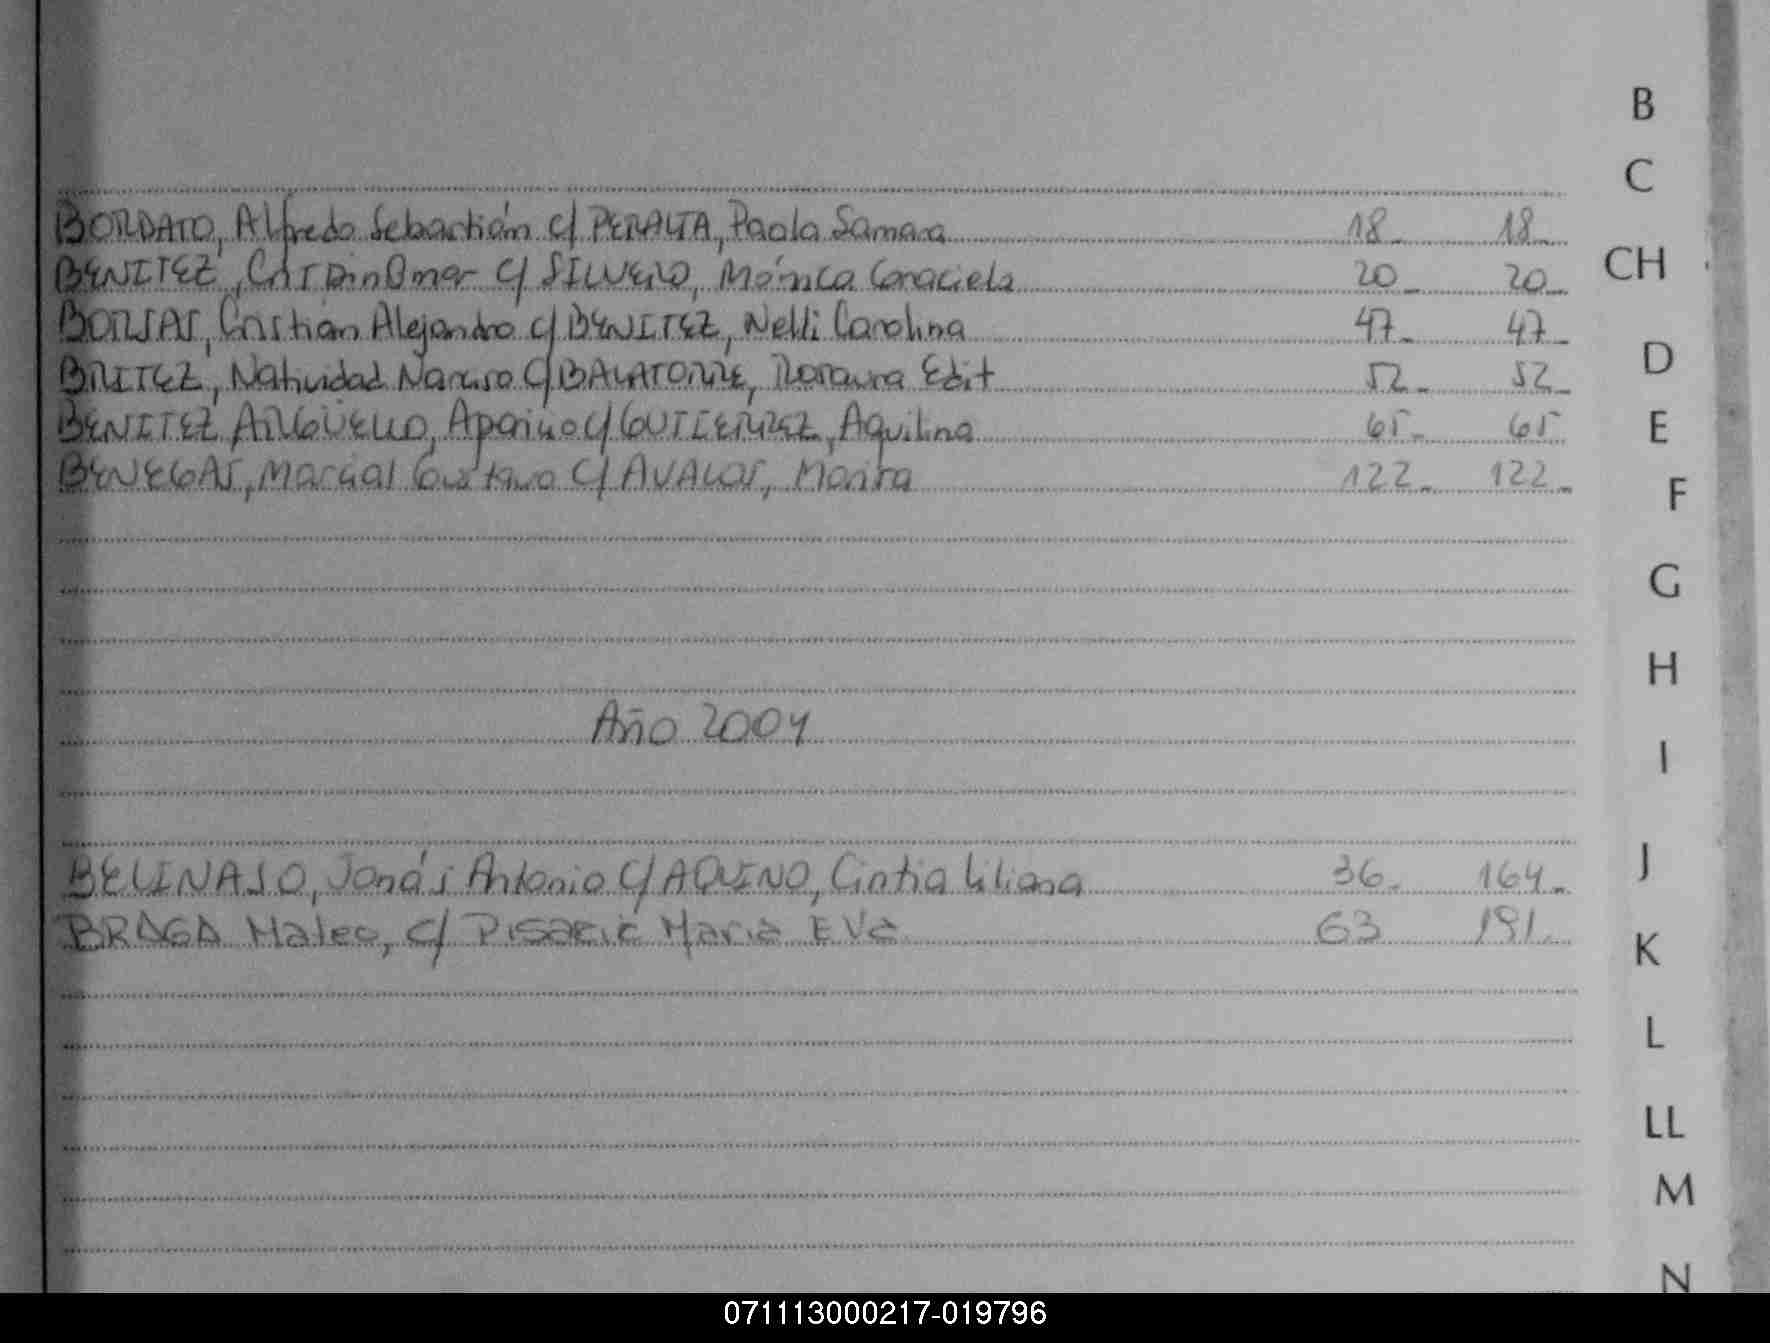 B
C
BORDATO, Alfredo Sebastián c/ PERALTA, Paola Samara 18 18
CH
BENITEZ, Omar c/ SILVERO, Mónica Graciela 20 20
BORJAS, Cristian Alejandro c/ BENITEZ, Nelli Carolina 47 47
D
BRITEZ, Natividad Narciso c/ BALATORRE, Rosaura Edit 52 52
BENITEZ ARGÜELLO, c/ GUTIERREZ, Aquilina 65 65
E
BENEGAS, Marcial Gustavo c/ AVALOS, 122 122
F
G
H
Año 2004
I
J
BELINASO, Jonás Antonio c/ AQUINO, Cintia Liliana 36 164
BRAGA Mateo, c/ Maria Eva 63 191
K
L
LL
M
N
071113000217-019796